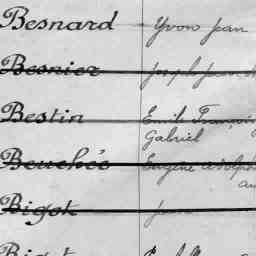 Besnard Yvon Jean
Besnier Joseph
Bestin Emile François
Gabriel
Beuchée Eugène Adolphe
Bigot
Bigot